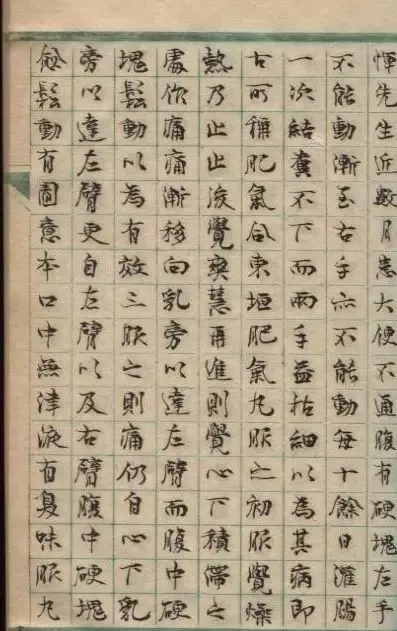 惲先生近數月患大便不通腹有硬塊左手
不能動漸至右手亦不能動每十餘日灌腸
一次結糞不下而兩手益枯細以為其病即
古所稱肥氣合東垣肥氣丸服之初服覺燥
熱乃止止後覺爽慧再進則覺心下積滯之
處作痛痛漸移向乳旁以達左臂而腹中硬
塊鬆動以為有效三服之則痛仍自心下乳
旁以達左臂更自左臂以及右臂腹中硬塊
愈鬆動有意本口中無津液有臭味服丸